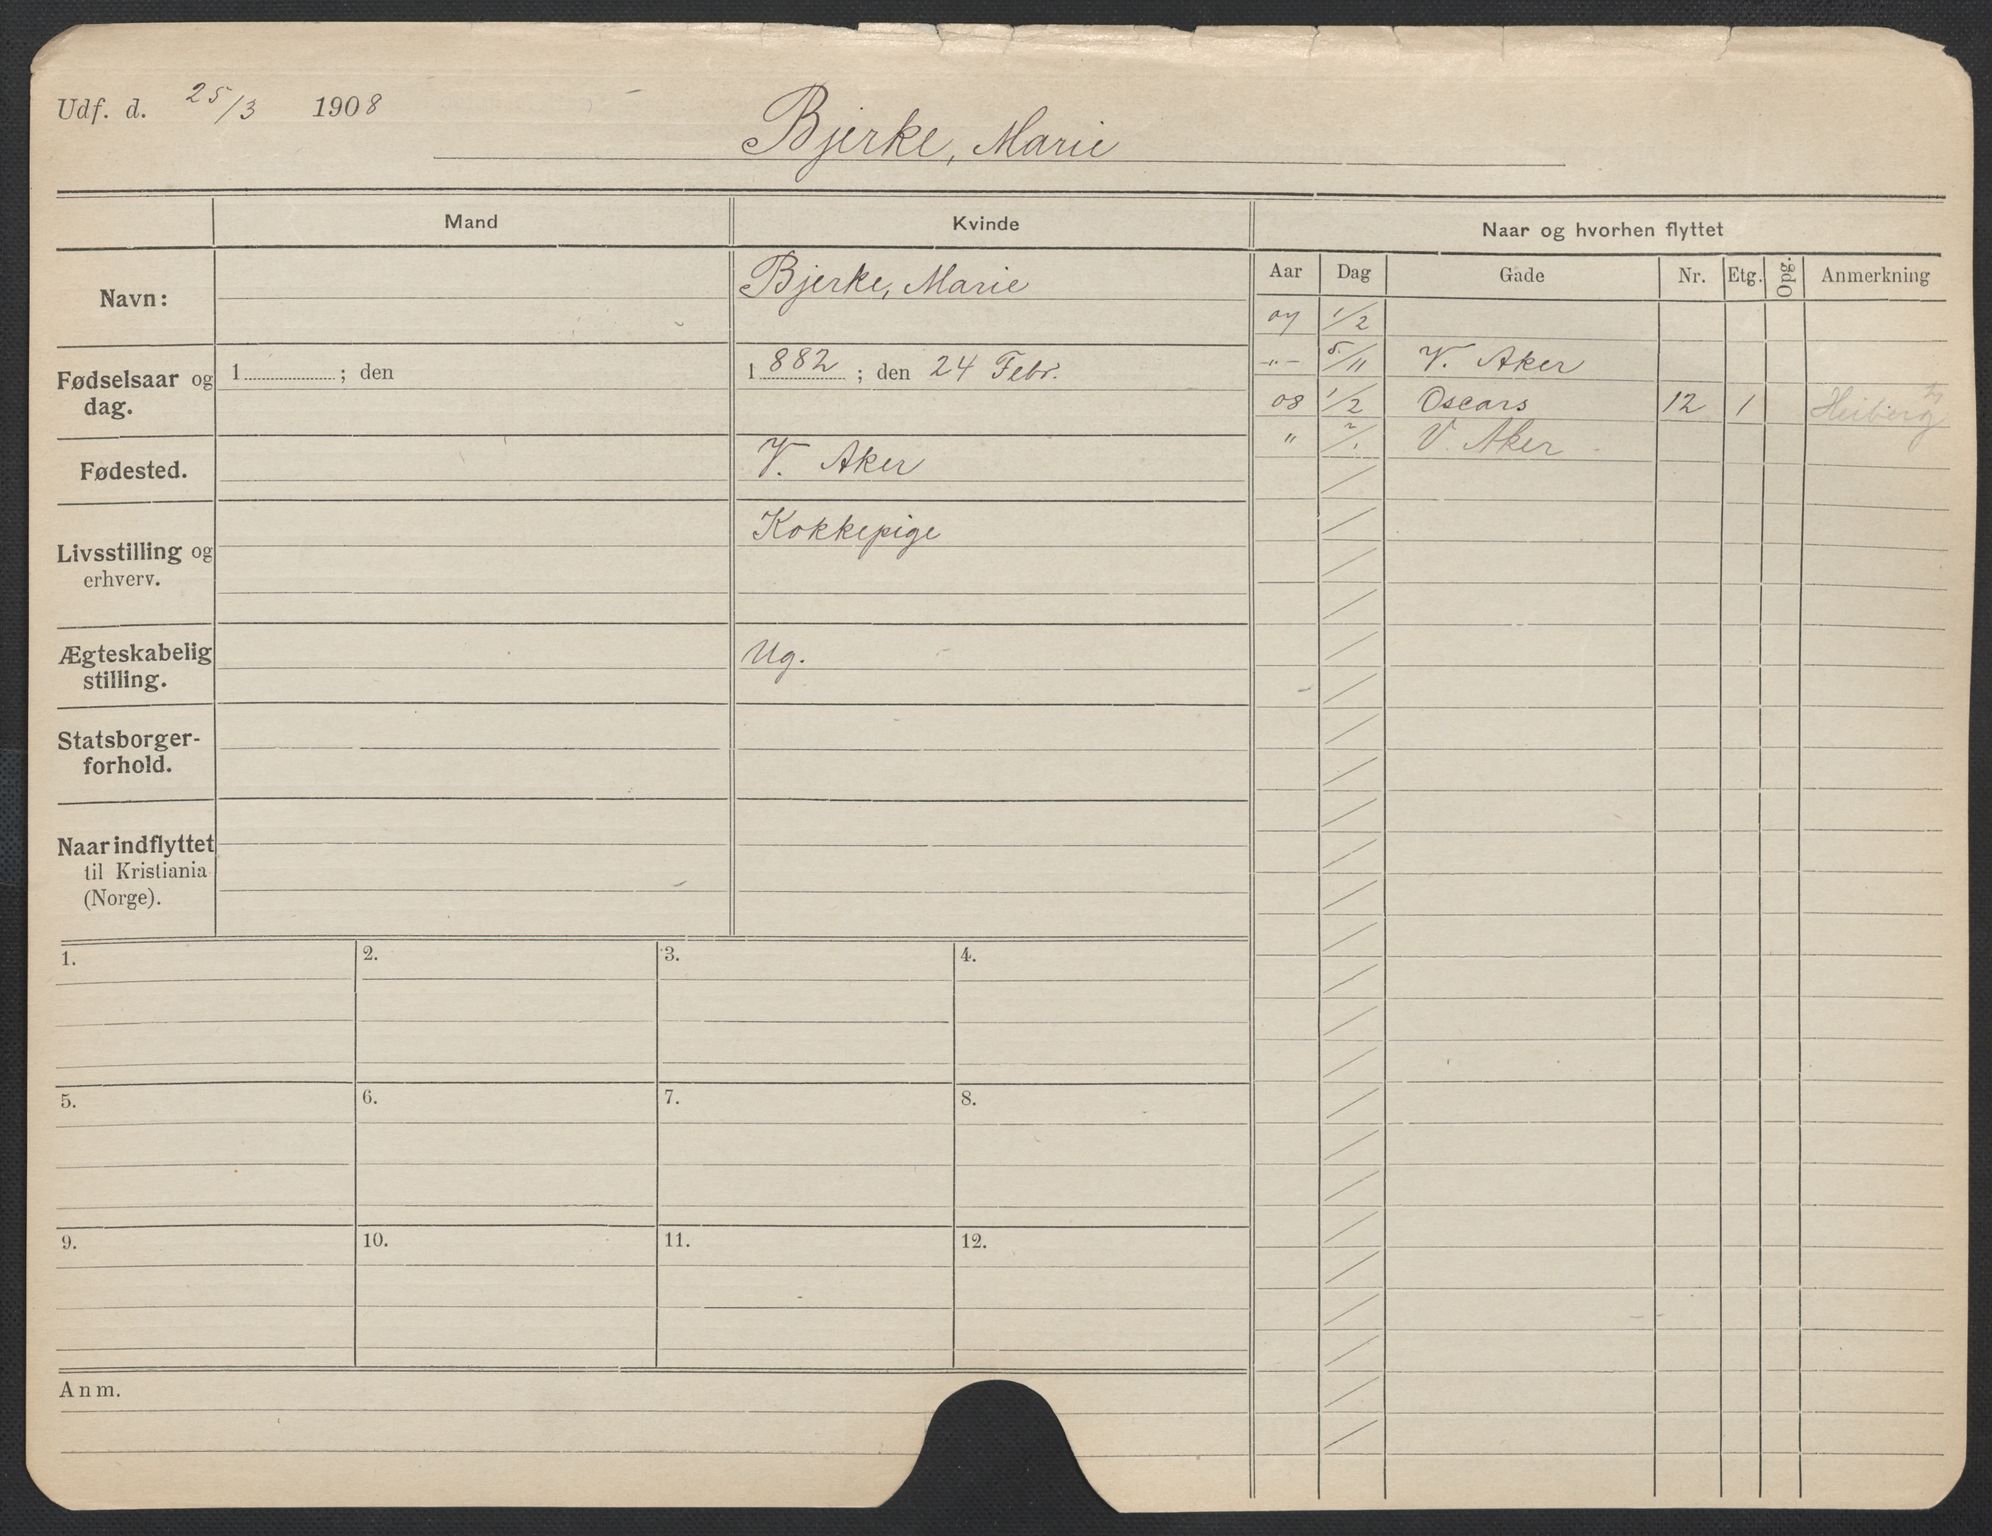 Udf. d. 25/3 1908
Bjerke, Marie
Mand
Kvinde
Naar og hvorhen flyttet
Navn:
Bjerke, Marie
Fødselsaar og dag.
1 ; den
1 882 ; den 24 Febr.
Fødested.
V. Aker
Livsstilling og erhverv.
Kokkepige
Ægteskabelig stilling.
Ug.
Statsborger-
forhold.
Naar indflyttet
til Kristiania
(Norge).
Aar Dag Gade Nr. Etg. Opg. Anmerkning
07 1/2
-"- 5/11 V. Aker
08 1/2 Oscars 12 1 Heiberg
" V. Aker
1. 2. 3. 4.
5. 6. 7. 8.
9. 10. 11. 12.
Anm.